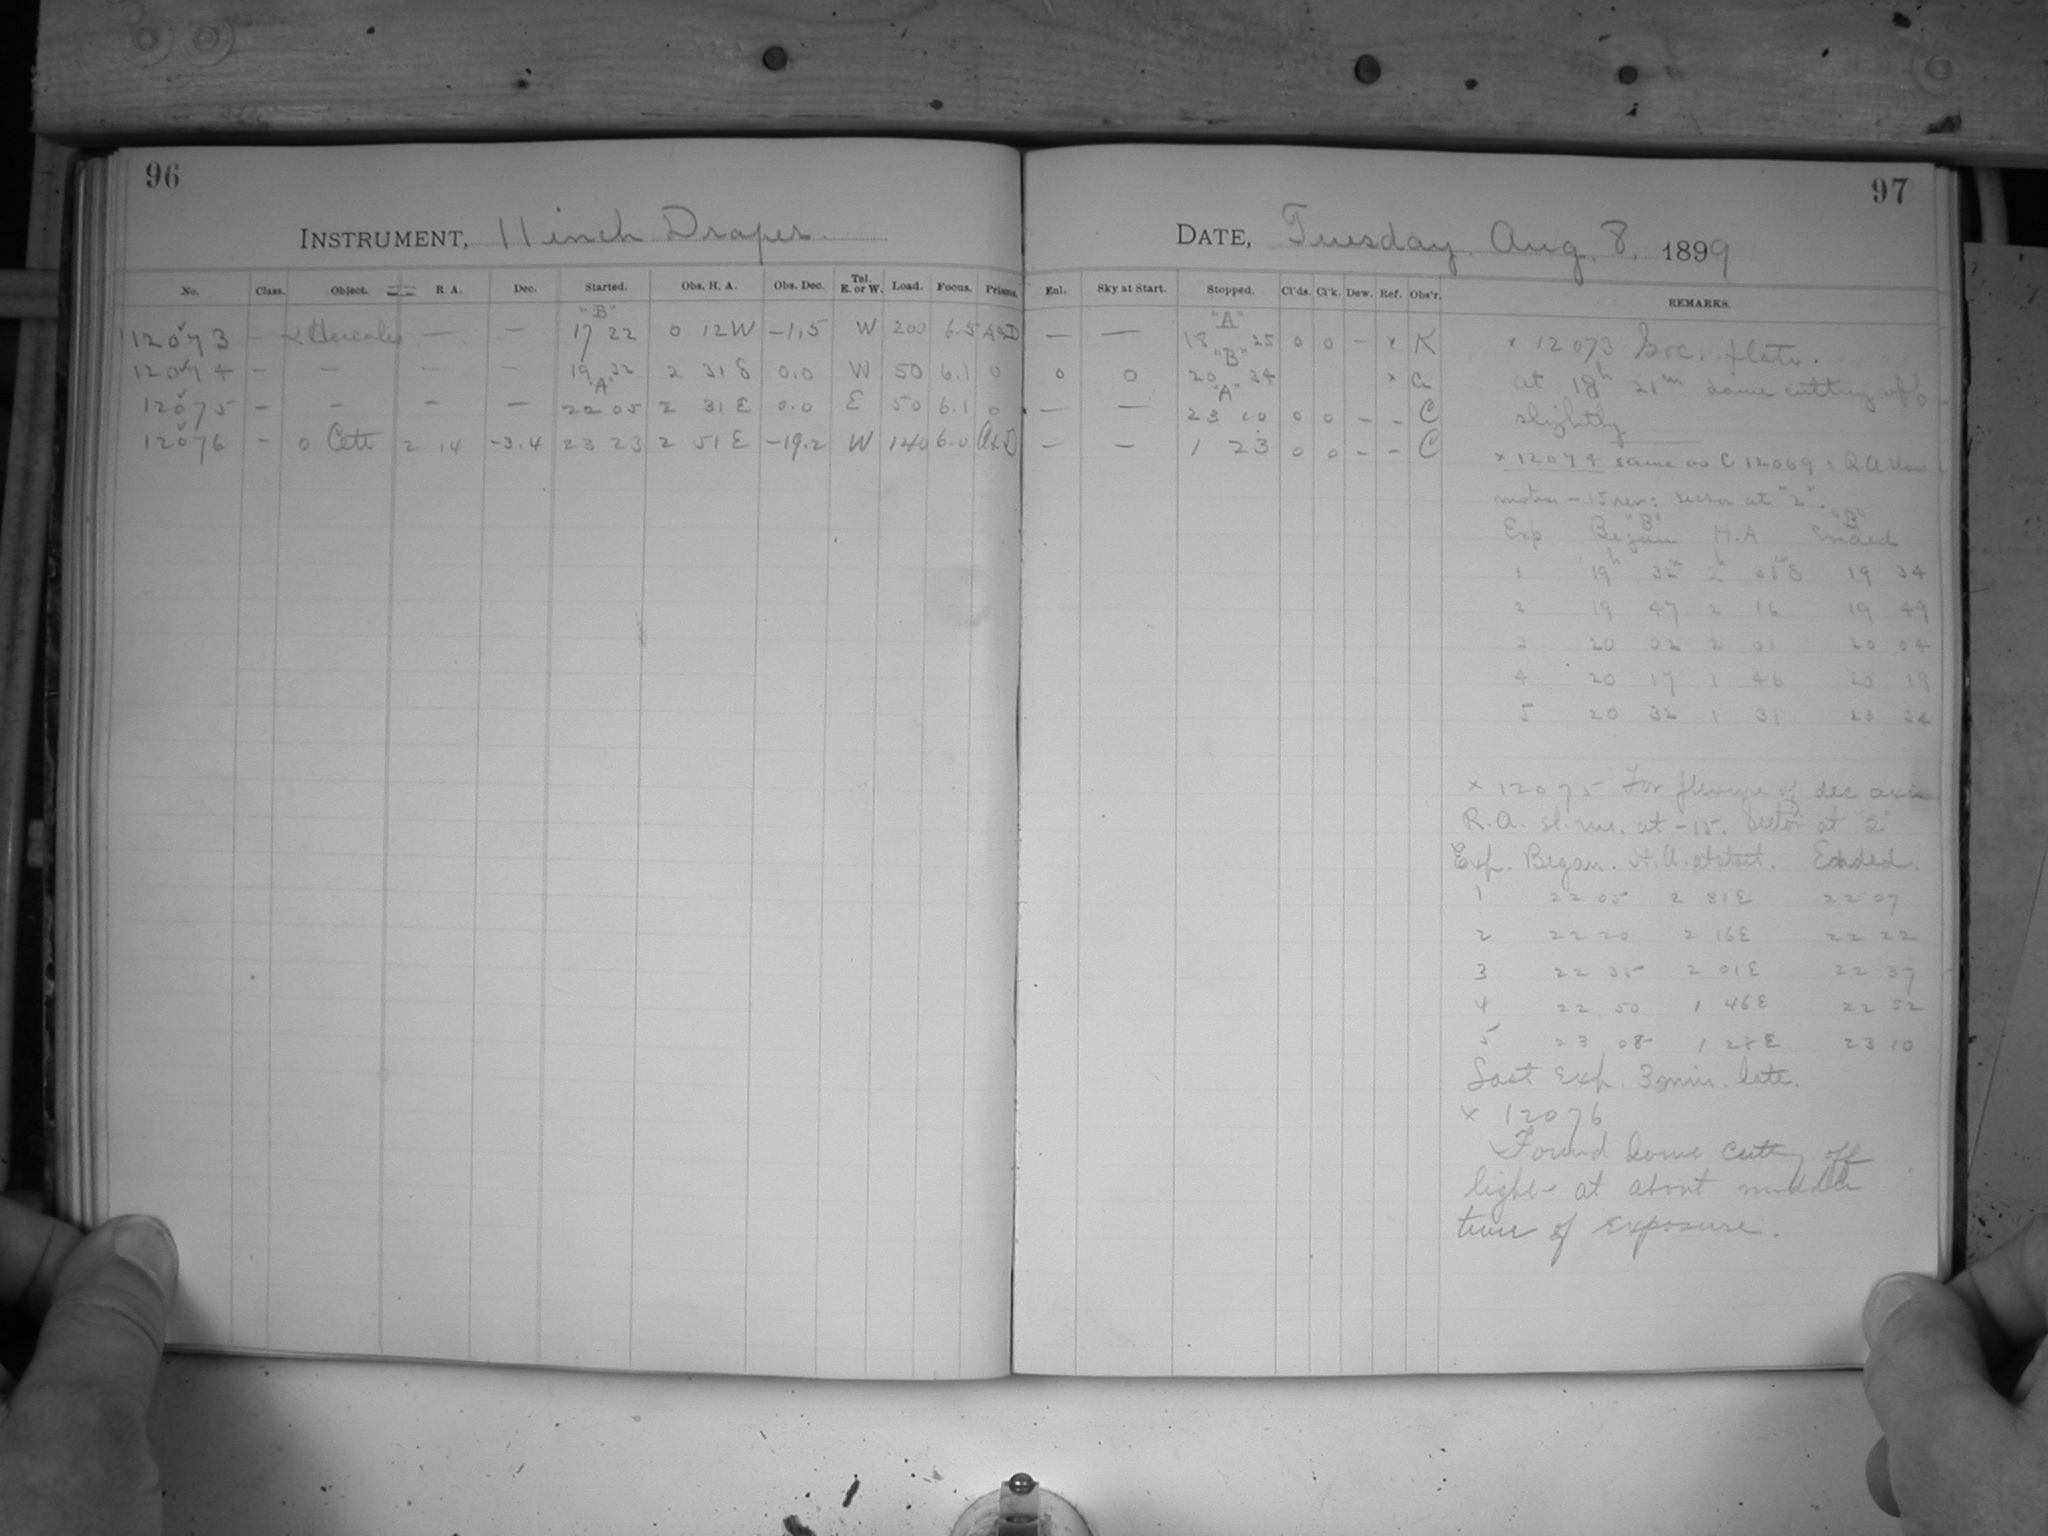 96
INSTRUMENT, 11 inch Draper.
No. Class. Object. R. A. Dec. Started. Obs. H. A. Obs. Dec. Tel. E. or W. Load. Focus. Prisms.
"B"
12073 — α Herculis — — 17 22 0 12 W —1.5 W 200 6.5
12074 — — — — 19 32 2 31 E 0.0 W 50 6.1 0
"A"
12075 — — — — 22 05 2 31 E 0.0 E 50 6.1 0
12076 — o Ceti 2 14 -3.4 23 23 2 51 E -19.2 W 140 6.0
97
DATE, Tuesday Aug. 8, 1899
Sky at Start. Stopped. Cl'ds. Cl'k. Dew. Ref. Obs'r. REMARKS.
"A"
— — 18 25 0 0 — x K
"B"
0 0 20 34 x
"A"
— — 23 10 0 0 — — C
— — 1 23 0 0 — — C
x 12073 plate.
at 18h 21m dome cutting off
slightly
x 12074 same as C 12069: R.A. slow
motion — 15 rev: sector at "2".
"B" "B"
Exp Began H.A Ended
1 19h 32m 2h 31m E 19 34
2 19 47 2 16 19 49
3 20 02 2 01 20 04
4 20 17 1 46 20 19
5 20 32 1 31 20 34
x 12075 For flexure of dec axis
R.A. sl. mo. at -15. Sector at "2"
Exp. Began. H.A. at start. Ended.
1 22 05 2 31 E 22 07
2 22 20 2 16 E 22 22
3 22 35 2 01 E 22 37
4 22 50 1 46 E 22 52
5 23 08 1 28 E 23 10
Last Exp. 3 min. late.
x 12076
Found dome cutting off
light at about middle
time of exposure.